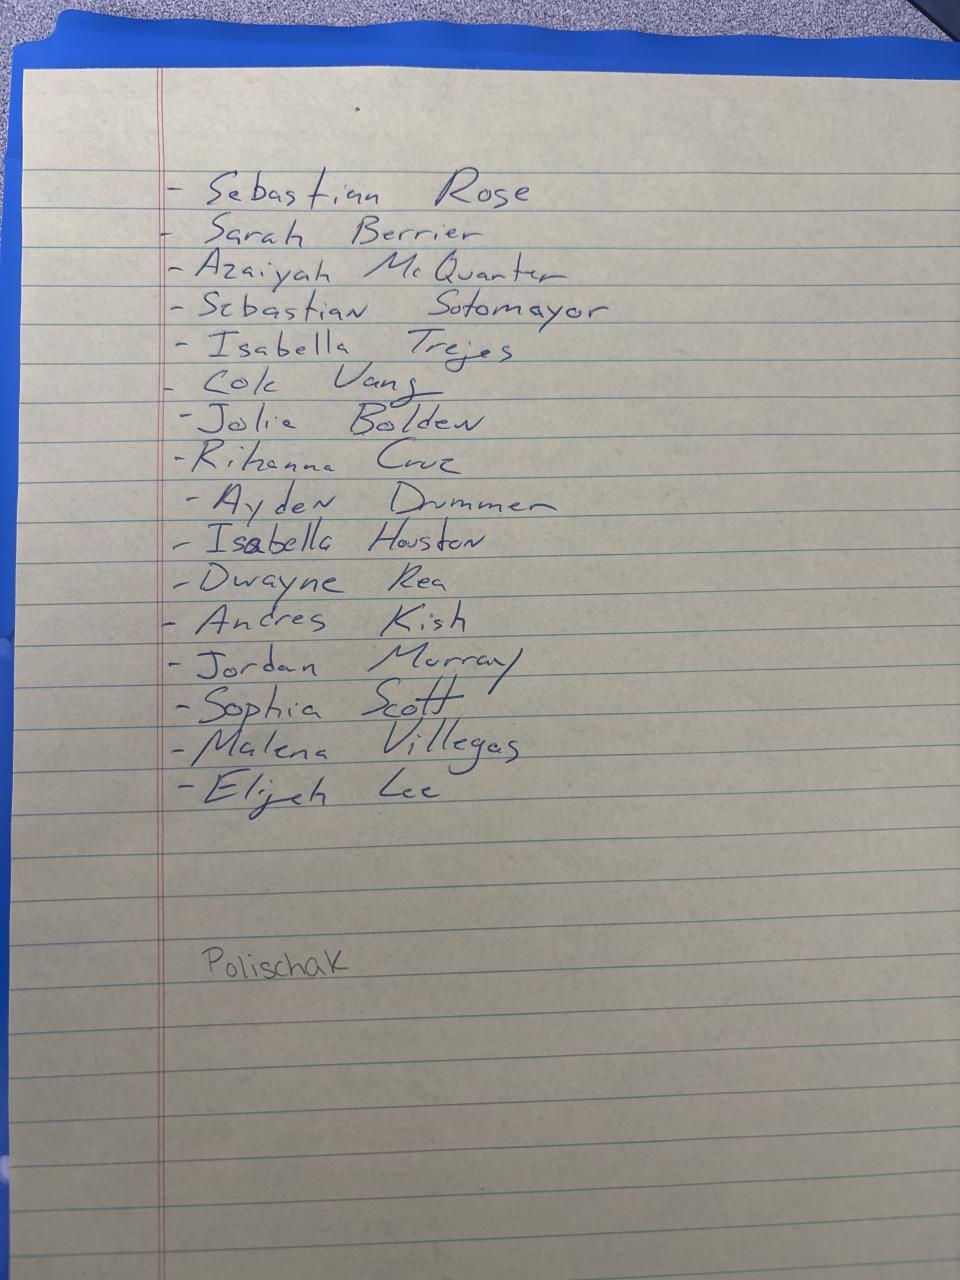 - Sebastian Rose
- Sarah Berrier
- Azaiyah McQuarter
- Sebastian Sotomayor
- Isabella Trejes
- Cole Vang
- Jolie Bolden
- Rihanna Cruz
- Ayden Drummer
- Isabella Houston
- Dwayne Rea
- Andres Kish
- Jordan Murray
- Sophia Scott
- Malena Villegas
- Elijah Lee
Polischak